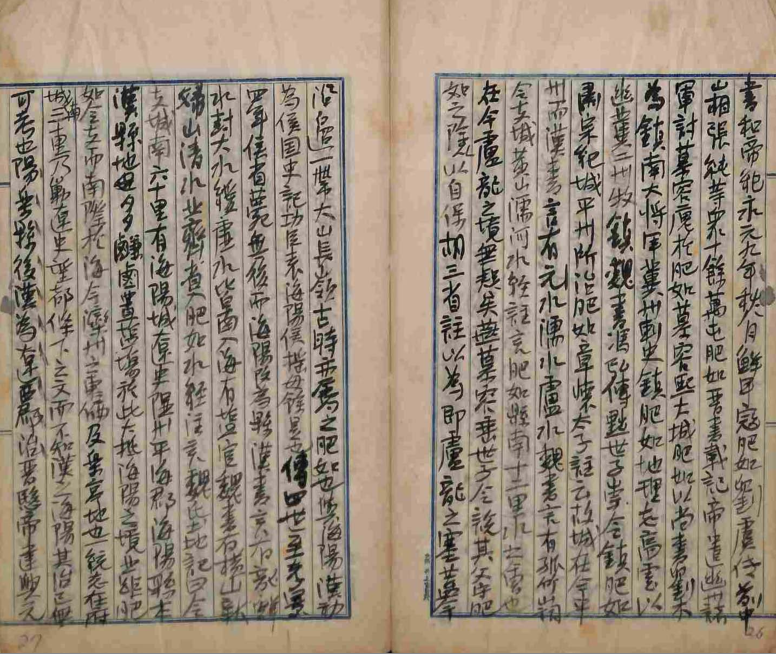 書和帝紀永元九年秋八月鮮卑寇肥如劉虞傳劉中
山相張純等眾十餘萬屯肥如晉書載記帝遣幽州諸
軍討慕容廆於肥如慕容熙大城肥如以尚書劉木
為鎮南大將軍冀州刺史鎮肥如地理志高雲以
幽冀二州牧鎮魏書馮跋傳黜世子崇令鎮肥如
肅宗紀城平州所治肥如章懷太子註云故城在今平
州而漢書言有元水濡水盧水魏書言有孤竹山祠
令支城黃山濡河水經註言肥如縣南十二里水之會也
在今盧龍之境無疑矣燕慕容垂世子令說其父守肥
如之險以自保胡三省註以為即盧龍之塞蓋今
沿邊一帶大山長嶺古時並屬之肥如也海陽漢初
為侯國史記功臣表海陽侯搖毋餘是也傳四世至孝景
四年侯省薨無後而海陽改為縣漢書言有龍鮮
水封大水緩虛水皆南入海有鹽官魏書有橫山新
婦山清水並齊貢肥如水經注言魏氏土地記曰令
支城南六十里有海陽城遼史灤州平海郡海陽縣本
漢縣地母多鹹鹵置鹽場於此大抵海陽之境北距肥
如令支而南際於海今灤州之東西及樂亭地也統志在府
城南三十里乃勦遼史望都條下之文而不知漢之海陽其治已無
可考也陽樂縣後漢為遼西郡治晉愍帝建興元
26
27